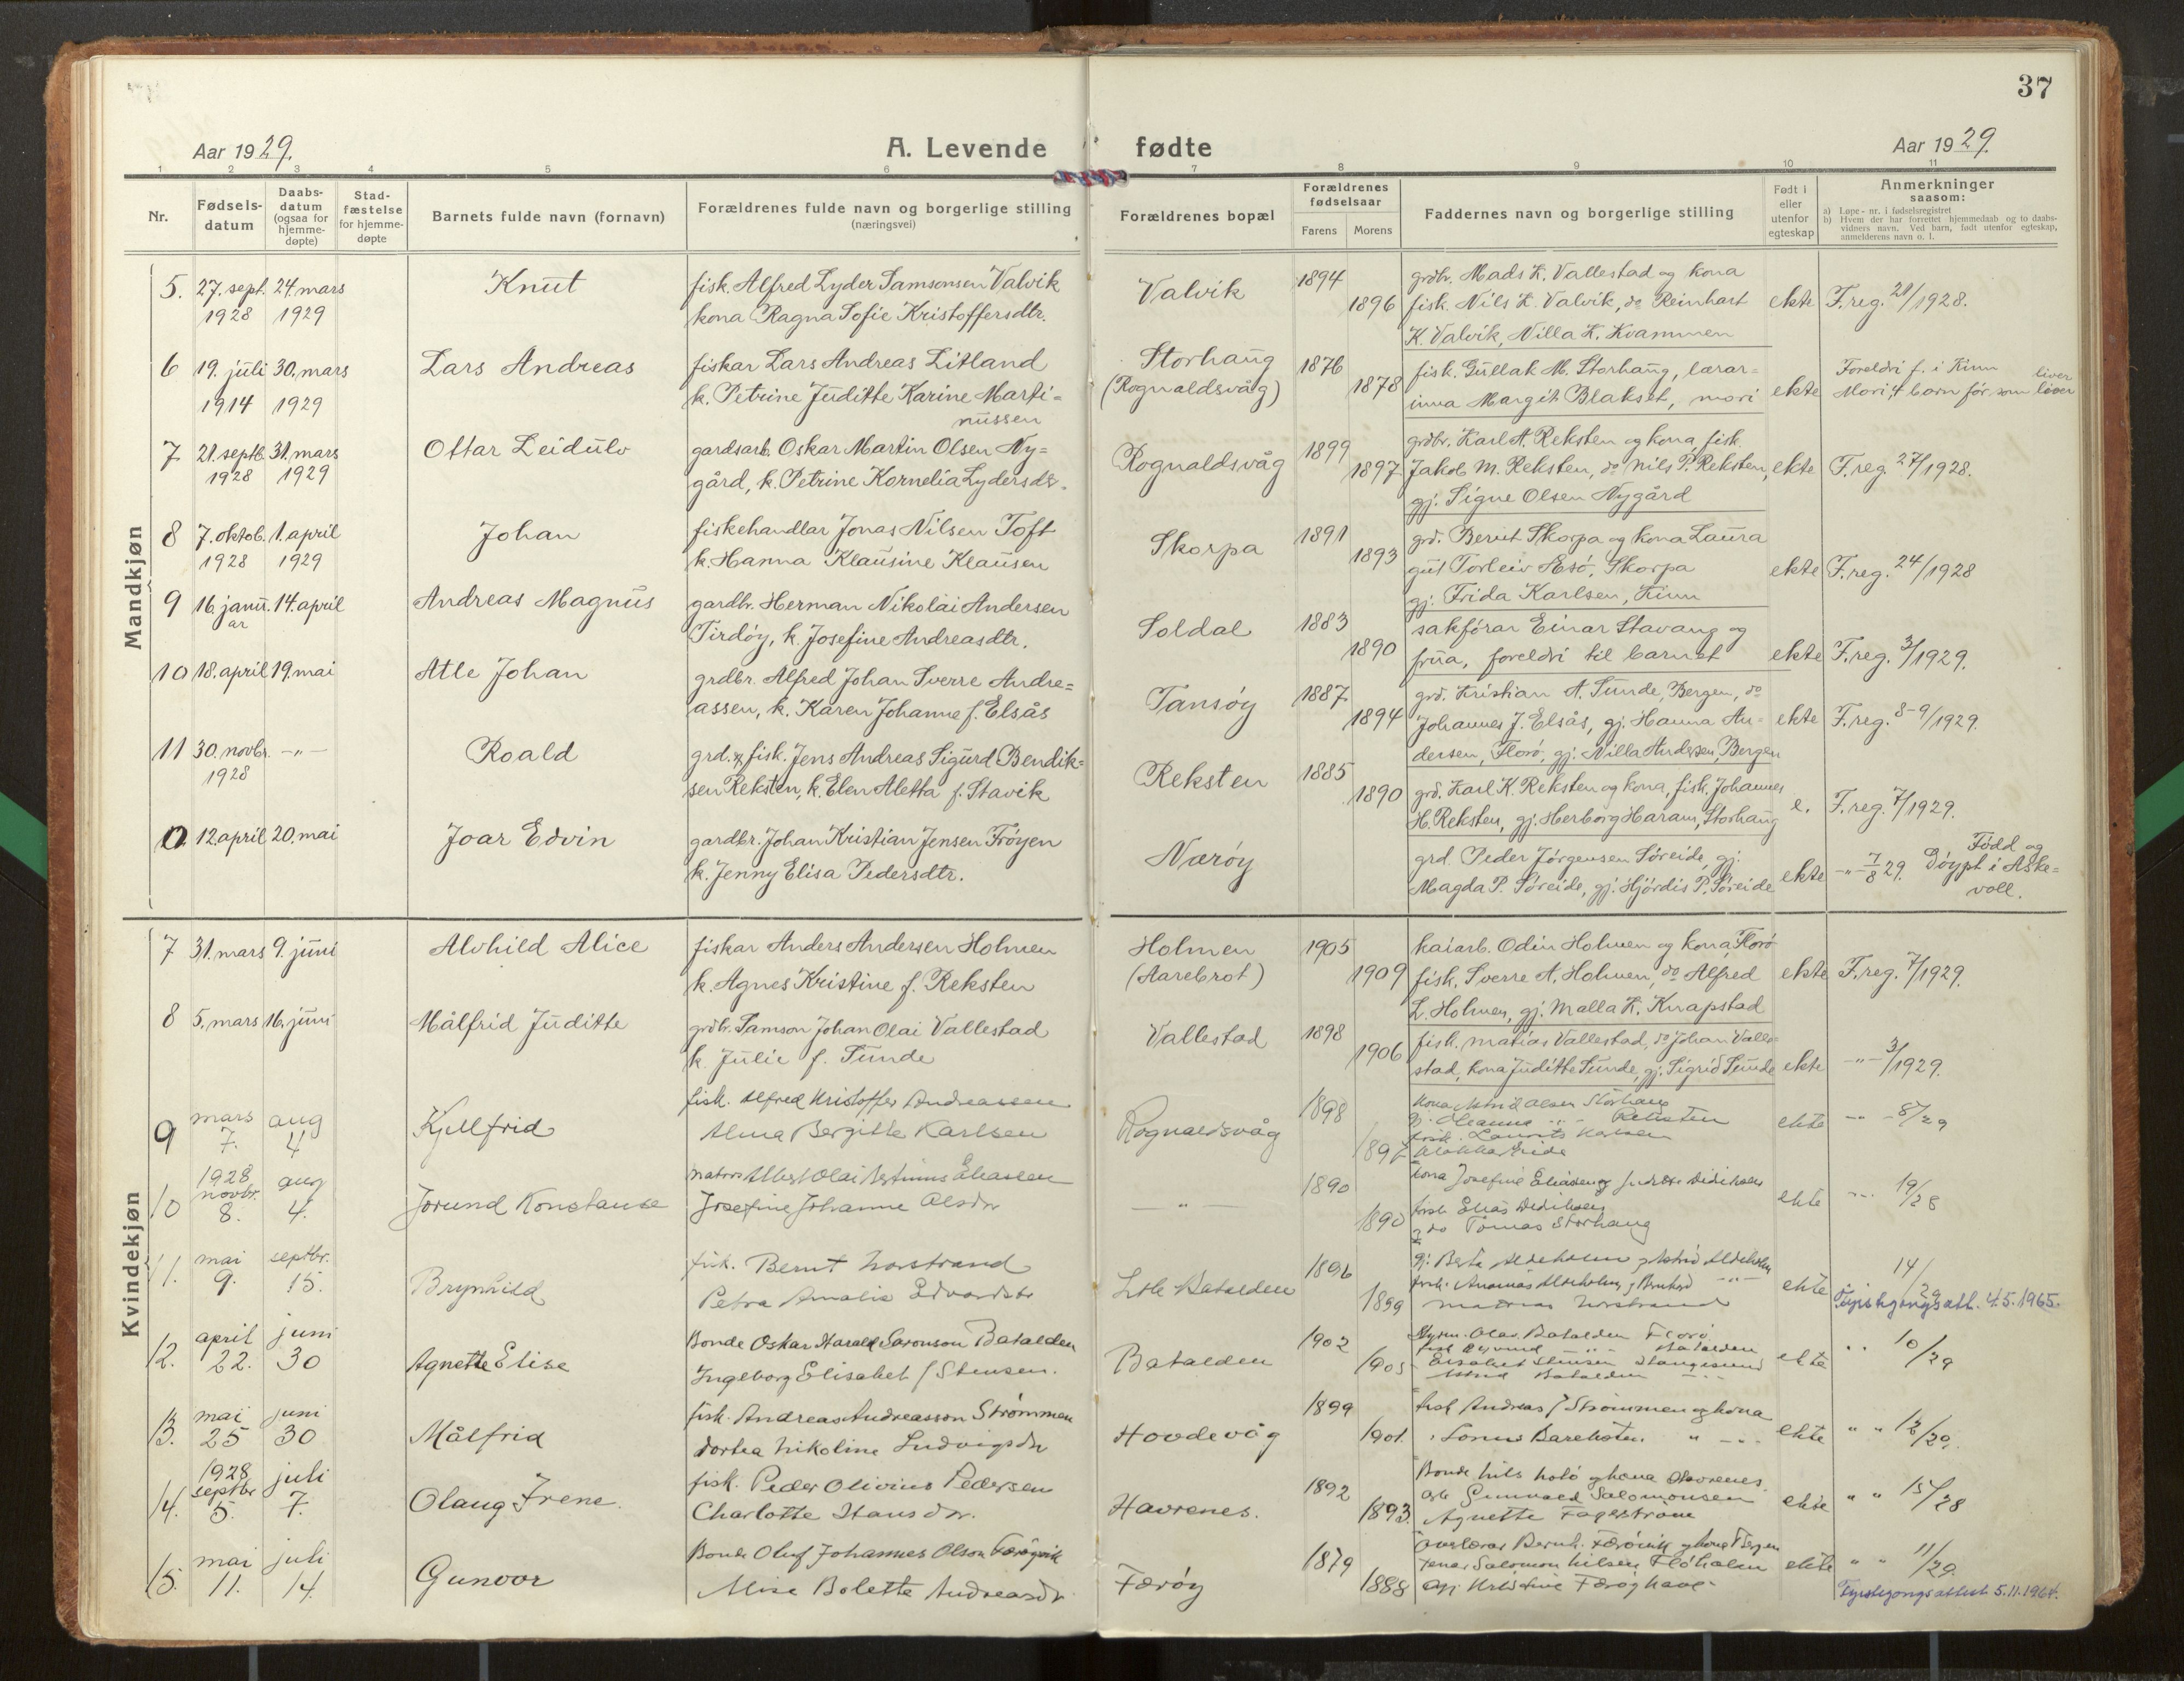 37
Aar 1929.
A. Levende fødte
Aar 1929.
1 2 3 4 5 6 7 8 9 10 11
Nr.
Fødsels-
datum
Daabs-
datum
(ogsaa for
hjemme-
døpte)
Stad-
fæstelse
for hjemme-
døpte
Barnets fulde navn (fornavn)
Forældrenes fulde navn og borgerlige stilling
(næringsvei)
Forældrenes bopæl
Forældrenes
fødselsaar
Farens Morens
Faddernes navn og borgerlige stilling
Født i
eller
utenfor
egteskap
Anmerkninger
saasom:
a) Løpe-nr. i fødselsregistret
b) Hvem der har forrettet hjemmedaab og to daabs-
vidners navn. Ved barn, født utenfor egteskap,
anmelderens navn o. l.
Mandkjøn
5. 27. sept. 24. mars
1928 1929
Knut
fisk. Alfred Lyder Samsonsen Valvik
kona Ragna Sofie Kristoffersdtr.
Valvik
1894
1896
grdbr. Mads K. Vallestad og kona
fisk. Nils K. Valvik, do Reinhart
K. Valvik, Villa K. Kvammen
ekte
F.reg. 21/1928.
6 19. juli 30. mars
1914 1929
Lars Andreas
fiskar Lars Andreas Litland
k. Petrine Juditte Karine Marti=
nussen
Storhaug
(Rognaldsvåg)
1876
1878
fisk. Gullak M. Storhaug, lærar=
inna Margit Blakset, mori
ekte
Foreldri f. i Kinn
Mori 4 born før som liver
liver
7 21. septb. 31. mars
1928 1929
Ottar Leidulv
gardsarb. Oskar Martin Olsen Ny=
gård, k. Petrine Kornelia Lydersdtr.
Rognaldsvåg
1899
1897
grdbr. Karl A. Reksten og kona, fisk.
Jakob M. Reksten, do Nils P. Reksten,
gj. Signe Olsen Nygård
ekte
F.reg. 27/1928.
8 7. oktob. 1. april
1928 1929
Johan
fiskehandlar Jonas Nilsen Toft
k. Hanna Klausine Klausen
Skorpa
1891
1893
grd. Bernt Skorpa og kona Laura
gut Torleiv Hesø, Skorpa
gj. Frida Karlsen, Kinn
ekte
F.reg. 24/1928
9 16. janu 14. april
ar
Andreas Magnus
gardbr. Herman Nikolai Andersen
Tirdøy, k. Josefine Andreasdtr.
Soldal
1883
1890
sakførar Einar Stavang og
frua, foreldri til barnet
ekte
F.reg. 3/1929.
10 18. april 19. mai
Atle Johan
grdbr. Alfred Johan Sverre Andre=
assen, k. Karen Johanne f. Elsås
Tansøy
1887.
1894
grd. Kristian A. Tunde, Bergen, do
Johannes J. Elsås, gj. Hanna An=
dersen, Florø, gj. Nilla Andersen, Bergen
ekte
F.reg. 8-9/1929.
11 30. novbr. -"-
1928
Roald
grd. & fisk. Jens Andreas Sigurd Bendik=
sen Reksten, k. Elen Aletta f. Stavik
Reksten
1885
1890
grd. Karl K. Reksten og kona, fisk. Johannes
H. Reksten, gj. Herborg Haram, Storhaug
e.
F.reg. 7/1929.
12 april 20. mai
Joar Edvin
gardbr. Johan Kristian Jensen Frøyen
k. Jenny Elisa Pedersdtr.
Nærøy
grd. Peder Jørgensen Søreide, gj.
Magda P. Søreide, gj. Hjördis P. Søreide
ekte
-"- 7/8 29. Född og
Döypt i Aske=
voll.
Kvindekjøn
7 31. mars 9. juni
Alvhild Alice
fiskar Anders Andersen Holmen
k. Agnes Kristine f. Reksten
Holmen
(Aarebrot)
1905
1909
kaiarb. Odin Holmen og kona, Florö
fisk. Sverre A. Holmen, do Alfred
L. Holmen, gj. Malla K. Knapstad
ekte
F.reg. 7/1929.
8 5. mars 16. juni
Målfrid Juditte
grdbr. Samson Johan Olai Vallestad
k. Julie f. Tunde
Vallestad
1898
1906
fisk. Matias Vallestad, do Johan Valle=
stad, kona Juditte Tunde, gj. Sigrid Tunde
ekte
-"- 3/1929.
9 mars aug
7. 4
Kjellfrid
fisk. Alfred Kristoffer Andreassen
Alma Bergitte Karlsen
Rognaldsvåg
1898
1897
kona Astrid Olsen Storhaug
gj. Oleanna " - Reksten
fisk. Laurits Karlsen
ekte
-"- 8/29
10 1928 aug
novbr.
8. 4.
Jorund Konstanse
Josefine Johanne Olsdtr
-"-
1890
1890
kona Josefine Eliassen og
fisk. Elias Didriksen
g do Tomas Storhaug
ekte
-"- 19/28
11. mai septbr.
9. 15.
Brynhild
fisk. Bernt Norstrand
Petra Amalie Edvardsdtr
Litle Batalden
1896
1899
gj. Berta Aldeholm g Astrid Aldeholm
ekte
14/29
Fyrstegongsatt. 4.5.1965.
12. april juni
22. 30
Agnette Elise
Bonde Oskar Harald Saronson Batalden
Ingeborg Elisabet f Stensen.
Batalden
1902
1905
Olav Batalden Florö
Elisabet Stensen Stangesund
Batalden
ekte
" 10/29
13. mai juni
25 30
Målfrid
fisk. Andreas Andreasson Strømmen
Dortea Nikoline Ludvigsdtr
Hovdevåg
1899
1901.
fisk Andreas J Strömmen og kona
ekte
" " 12/29.
14. 1928 juli
septbr
5. 7.
Olaug Irene.
fisk. Peder Olivius Pedersen
Charlotte Hansdtr.
Havrenes.
1892
1893.
Bonde Nils og kona Havrenes
Salomonsen
Agnette Fagerstrøm
ekte
" " 15/28
15. mai juli
11. 14.
Gunvor
Bonde Oluf Johannes Olson Færöyvik
Bolette Andreasdtr
Færöy
1879
1888
Salomon Nilsen
ekte
" " 11/29.
Fyrstegongsattest 5.11.1964.